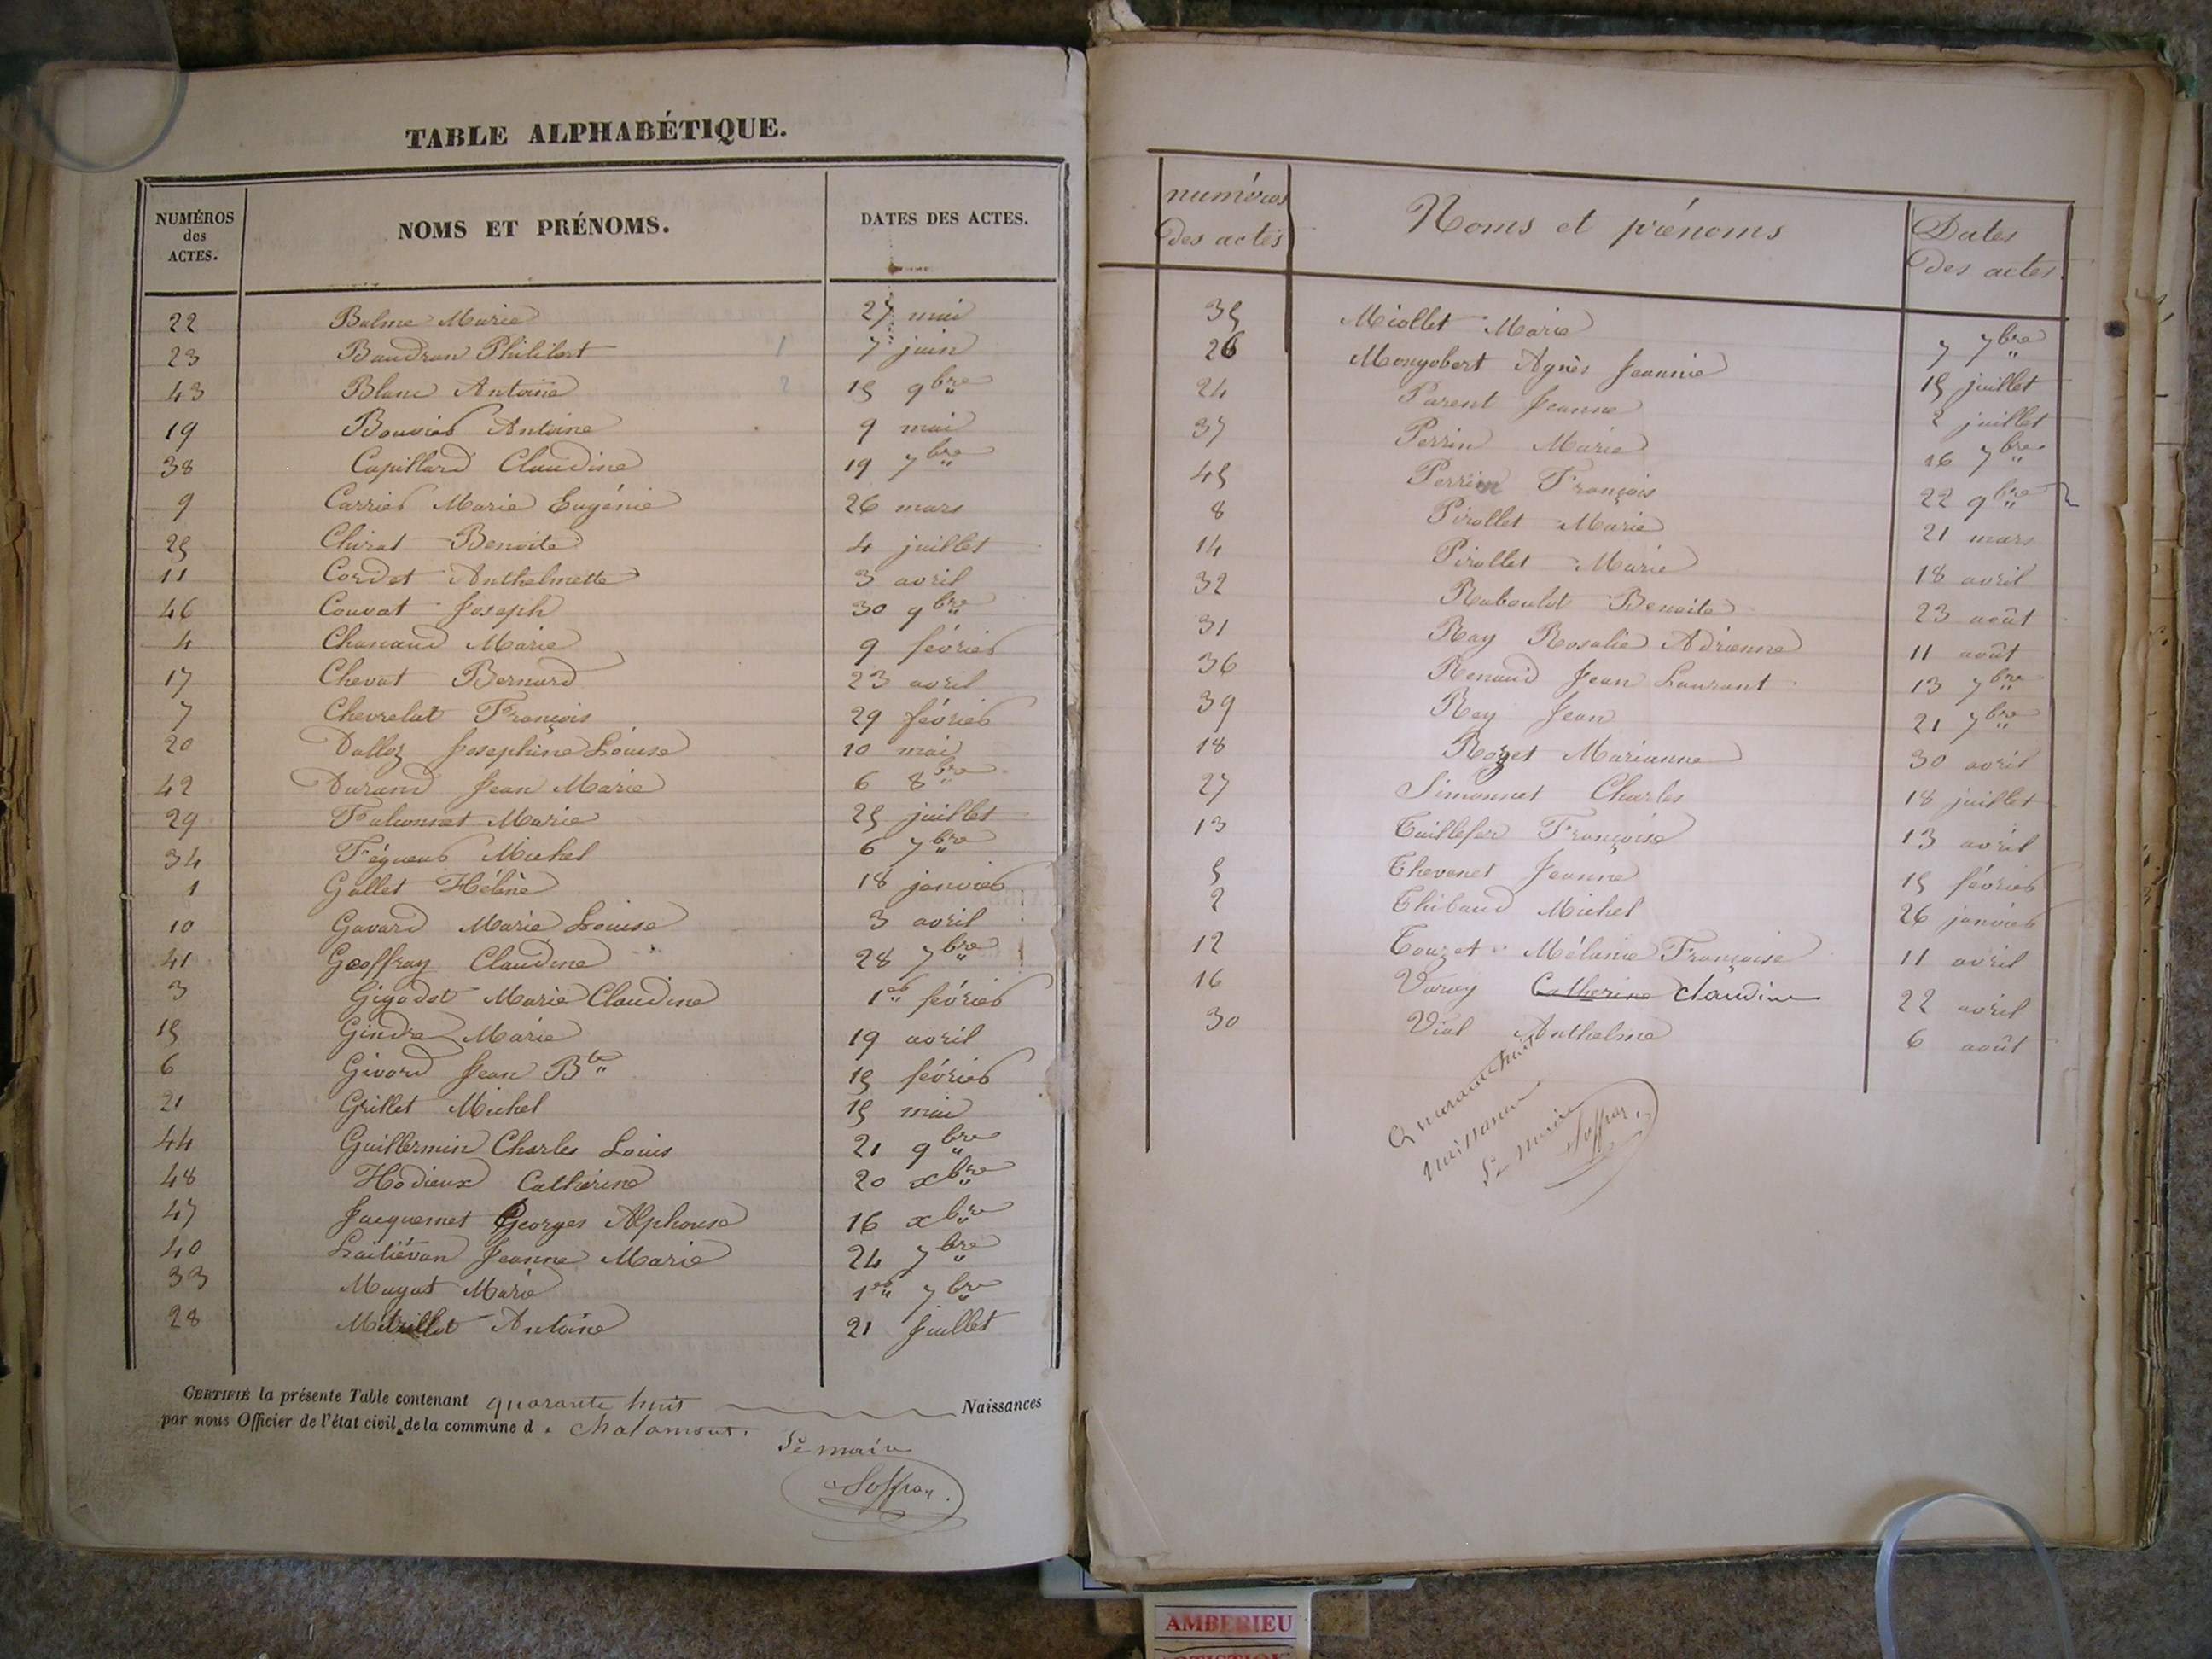 TABLE ALPHABÉTIQUE.
NUMÉROS des ACTES. NOMS ET PRÉNOMS. DATES DES ACTES.
22 Balme Marie 27 mai
23 Baudran Philibert 1 7 juin
43 Blanc Antoine 2 15 9bre
19 Bouvier Antoine 9 mai
38 Capillard Claudine 19 7bre
9 Carrier Marie Eugénie 26 mars
25 Chirat Benoite 4 juillet
11 Cordet Anthelmette 3 avril
46 Couvat Joseph 30 9bre
4 Chanaud Marie 9 février
17 Chevat Bernard 23 avril
7 Chevrelat François 29 février
20 Dalloz Josephine Louise 10 mai
42 Durand Jean Marie 6 8bre
29 Falconnet Marie 25 juillet
34 Michel 6 7bre
1 Gallet Hélène 18 janvier
10 Gavard Marie Louise 3 avril
41 Geoffray Claudine 28 7bre
3 Gigodot Marie Claudine 1er février
15 Gindre Marie 19 avril
6 Givord Jean Bte 15 février
21 Grillet Michel 15 mai
44 Guillermin Charles Louis 21 9bre
48 Hodieux Catherine 20 xbre
47 Jacquemet Georges Alphonse 16 xbre
40 Jeanne Marie 24 7bre
33 Mayat Marie 1er 7bre
28 Antoine 21 Juillet
CERTIFIÉ la présente Table contenant quarante huit Naissances
par nous Officier de l'état civil de la commune d Chalamont.
Le maire
Soffray
numéros des actes Noms et prénoms Dates des actes
35 Miollet Marie 7 7bre
26 Mongobert Agnès Jeannie 15 juillet
24 Parent Jeanne 2 juillet
37 Perrin Marie 16 7bre
45 Perrin François 22 9bre
8 Pirollet Marie 21 mars
14 Pirollet Marie 18 avril
32 Raboulot Benoite 23 août
31 Ray Rosalie Adrienne 11 août
36 Renaud Jean Laurent 13 7bre
39 Rey Jean 21 7bre
18 Rozet Marianne 30 avril
27 Simonnet Charles 18 juillet
13 Taillefer Françoise 13 avril
5 Thevenet Jeanne 15 février
2 Thibaud Michel 26 janvier
12 Touzet Mélanie Françoise 11 avril
16 Varay Catherine Claudine 22 avril
30 Vial Anthelme 6 août
Quarante huit
naissances
Le maire
Soffray
AMBERIEU